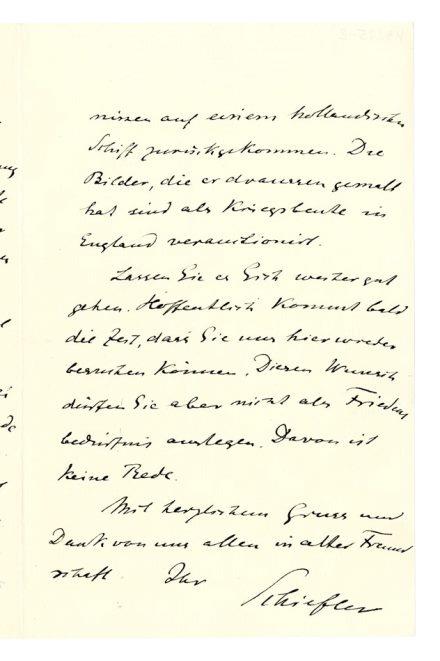 nissen auf einem holländischen
Schiff zurückgekommen. Die
Bilder, die er draussen gemalt
hat sind als Kriegsbeute in
England verauctionirt.
Lassen Sie es Sich weiter gut
gehen. Hoffentlich kommt bald
die Zeit, dass Sie uns hier wieder
besuchen können. Diesen Wunsch
dürfen Sie aber nicht als Friedens
bedürfnis auslegen. Davon ist
keine Rede.
Mit herzlichem Gruss und
Dank von uns allen in alter Freund
schaft Ihr
Schiefler